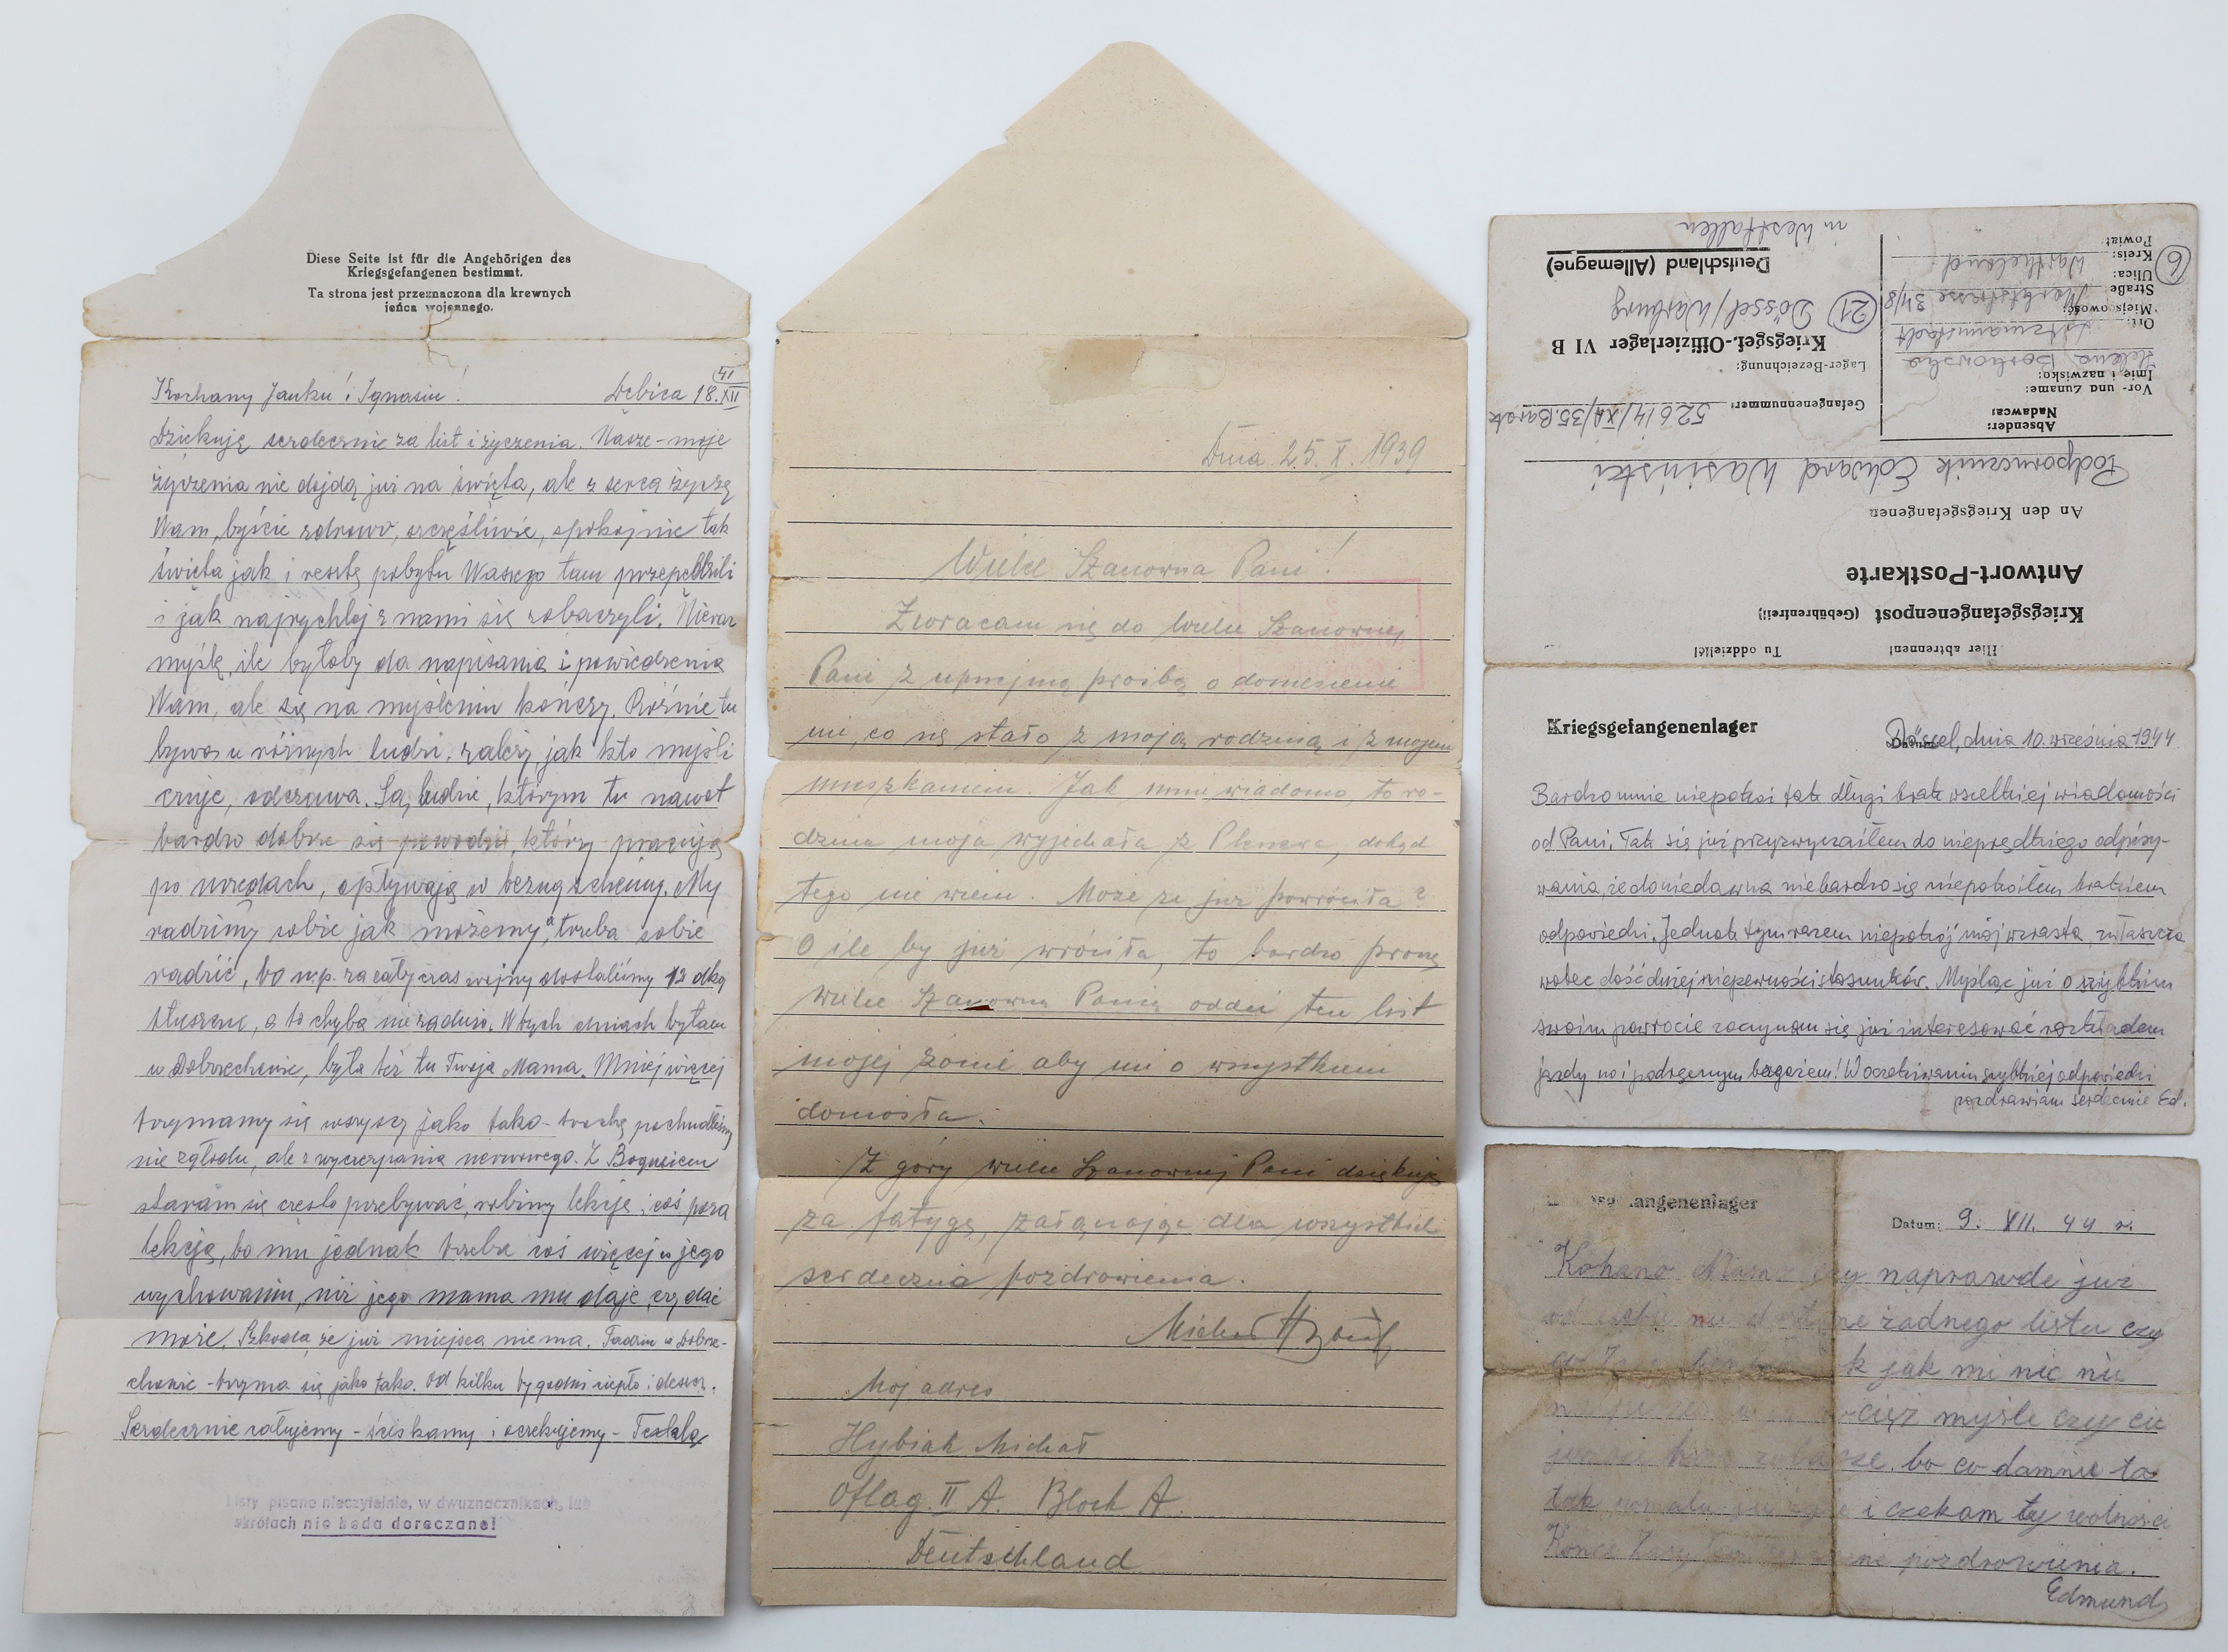 Diese Seite ist für die Angehörigen des
Kriegsgefangenen bestimmt.
Ta strona jest przeznaczona dla krewnych
jeńca wojennego.
Kochany Janku! i Ignasiu! Dębica 18.XII
41
Dziękuję serdecznie za list i życzenia. Nasze-moje
życzenia nie dojdą już na święta, ale z serca życzę
Wam, byście zdrowo, szczęśliwie, spokojnie tak
święta jak i resztę pobytu Waszego tam przepędzili
i jak najrychlej z nami się zobaczyli. Nieraz
myślę, ile byłoby do napisania i powiedzenia
Wam, ale się na myśleniu kończy. Różnie tu
bywa u różnych ludzi, zależy jak kto myśli
czuje, odczuwa. Są ludzie, którym tu nawet
bardzo dobrze się powodzi, którzy pracują
po urzędach, opływają w bezugscheiny. My
radzimy sobie jak możemy, a trzeba sobie
radzić, bo np. za cały czas wojny dostaliśmy 12 dkg
tłuszczu, a to chyba nie za dużo. W tych dniach byłam
w Dobrzechowie, była też tu Twoja Mama. Mniej więcej
trzymamy się wszyscy jako tako - trochę pochudliśmy
nie z głodu, ale z wyczerpania nerwowego. Z Bogusiem
staram się często przebywać, robimy lekcje i coś poza
lekcją, bo mu jednak trzeba coś więcej w jego
wychowaniu, niż jego mama mu daje, czy dać
może. Szkoda, że już miejsca nie ma. Tadziu w Dobrze-
chowie - trzyma się jako tako. Od kilku tygodni ciepło i deszcz.
Serdecznie całujemy - ściskamy i oczekujemy -
Listy pisane nieczytelnie, w dwuznacznikach, lub
skrótach nie będą doręczane!
Dnia 25. X. 1939
Wielce Szanowna Pani!
Zwracam się do Wielce Szanownej
Pani z uprzejmą prośbą o doniesienie
mi, co się stało z moją rodziną i z mojem
mieszkaniem. Jak mnie wiadomo, to ro-
dzina moja wyjechała z Pleszewa, dokąd
tego nie wiem. Może że już powróciła?
O ile by już wróciła, to bardzo proszę
wielce Szanowną Panią oddać ten list
mojej żonie aby mi o wszystkiem
doniosła.
Z góry wielce Szanownej Pani dziękuję
za fatygę, załączając dla wszystkich
serdeczne pozdrowienia.
Michał Hybiak
Mój adres
Hybiak Michał
Oflag II A. Block A.
Deutschland
Hier abtrennen! Tu oddzielić!
Kriegsgefangenenpost (Gebührenfrei!)
Antwort-Postkarte
An den Kriegsgefangenen
Podporucznik Edward Wasiński
Absender:
Nadawca:
Vor- und Zuname:
Imię i nazwisko:
Helena
Ort: Litzmannstadt
Miejscowość:
Straße: 34/8
Ulica:
Kreis: Wartheland
Powiat:
6
Gefangenennummer: 526/4/XA/35.Barak
Lager-Bezeichnung:
Kriegsgef.-Offizierlager VI B
21 Dössel/Warburg
Deutschland (Allemagne)
in Westfallen
Kriegsgefangenenlager
Datum: Dössel, dnia 10 września 1944
Bardzo mnie niepokoi tak długi brak wszelkiej wiadomości
od Pani. Tak się już przyzwyczaiłem do nieprędkiego odpisy-
wania, że do niedawna niebardzo się niepokoiłem brakiem
odpowiedzi. Jednak tym razem niepokój mój wzrasta, zwłaszcza
wobec dość dużej niepewności stosunków. Myśląc już o szybkim
swoim powrocie zaczynam się już interesować rozkładem
jazdy no i podręcznym bagażem! W oczekiwaniu szybkiej odpowiedzi
pozdrawiam serdecznie Ed.
angenenlager
Datum: 9. XII. 44 r.
Kohano Mamo czy naprawde już
od żadnego listu czy
k jak mi nic nie
myśle czy cie
bo co damnie to
tak i czekam tej wolności
Koncze pozdrowienia.
Edmund